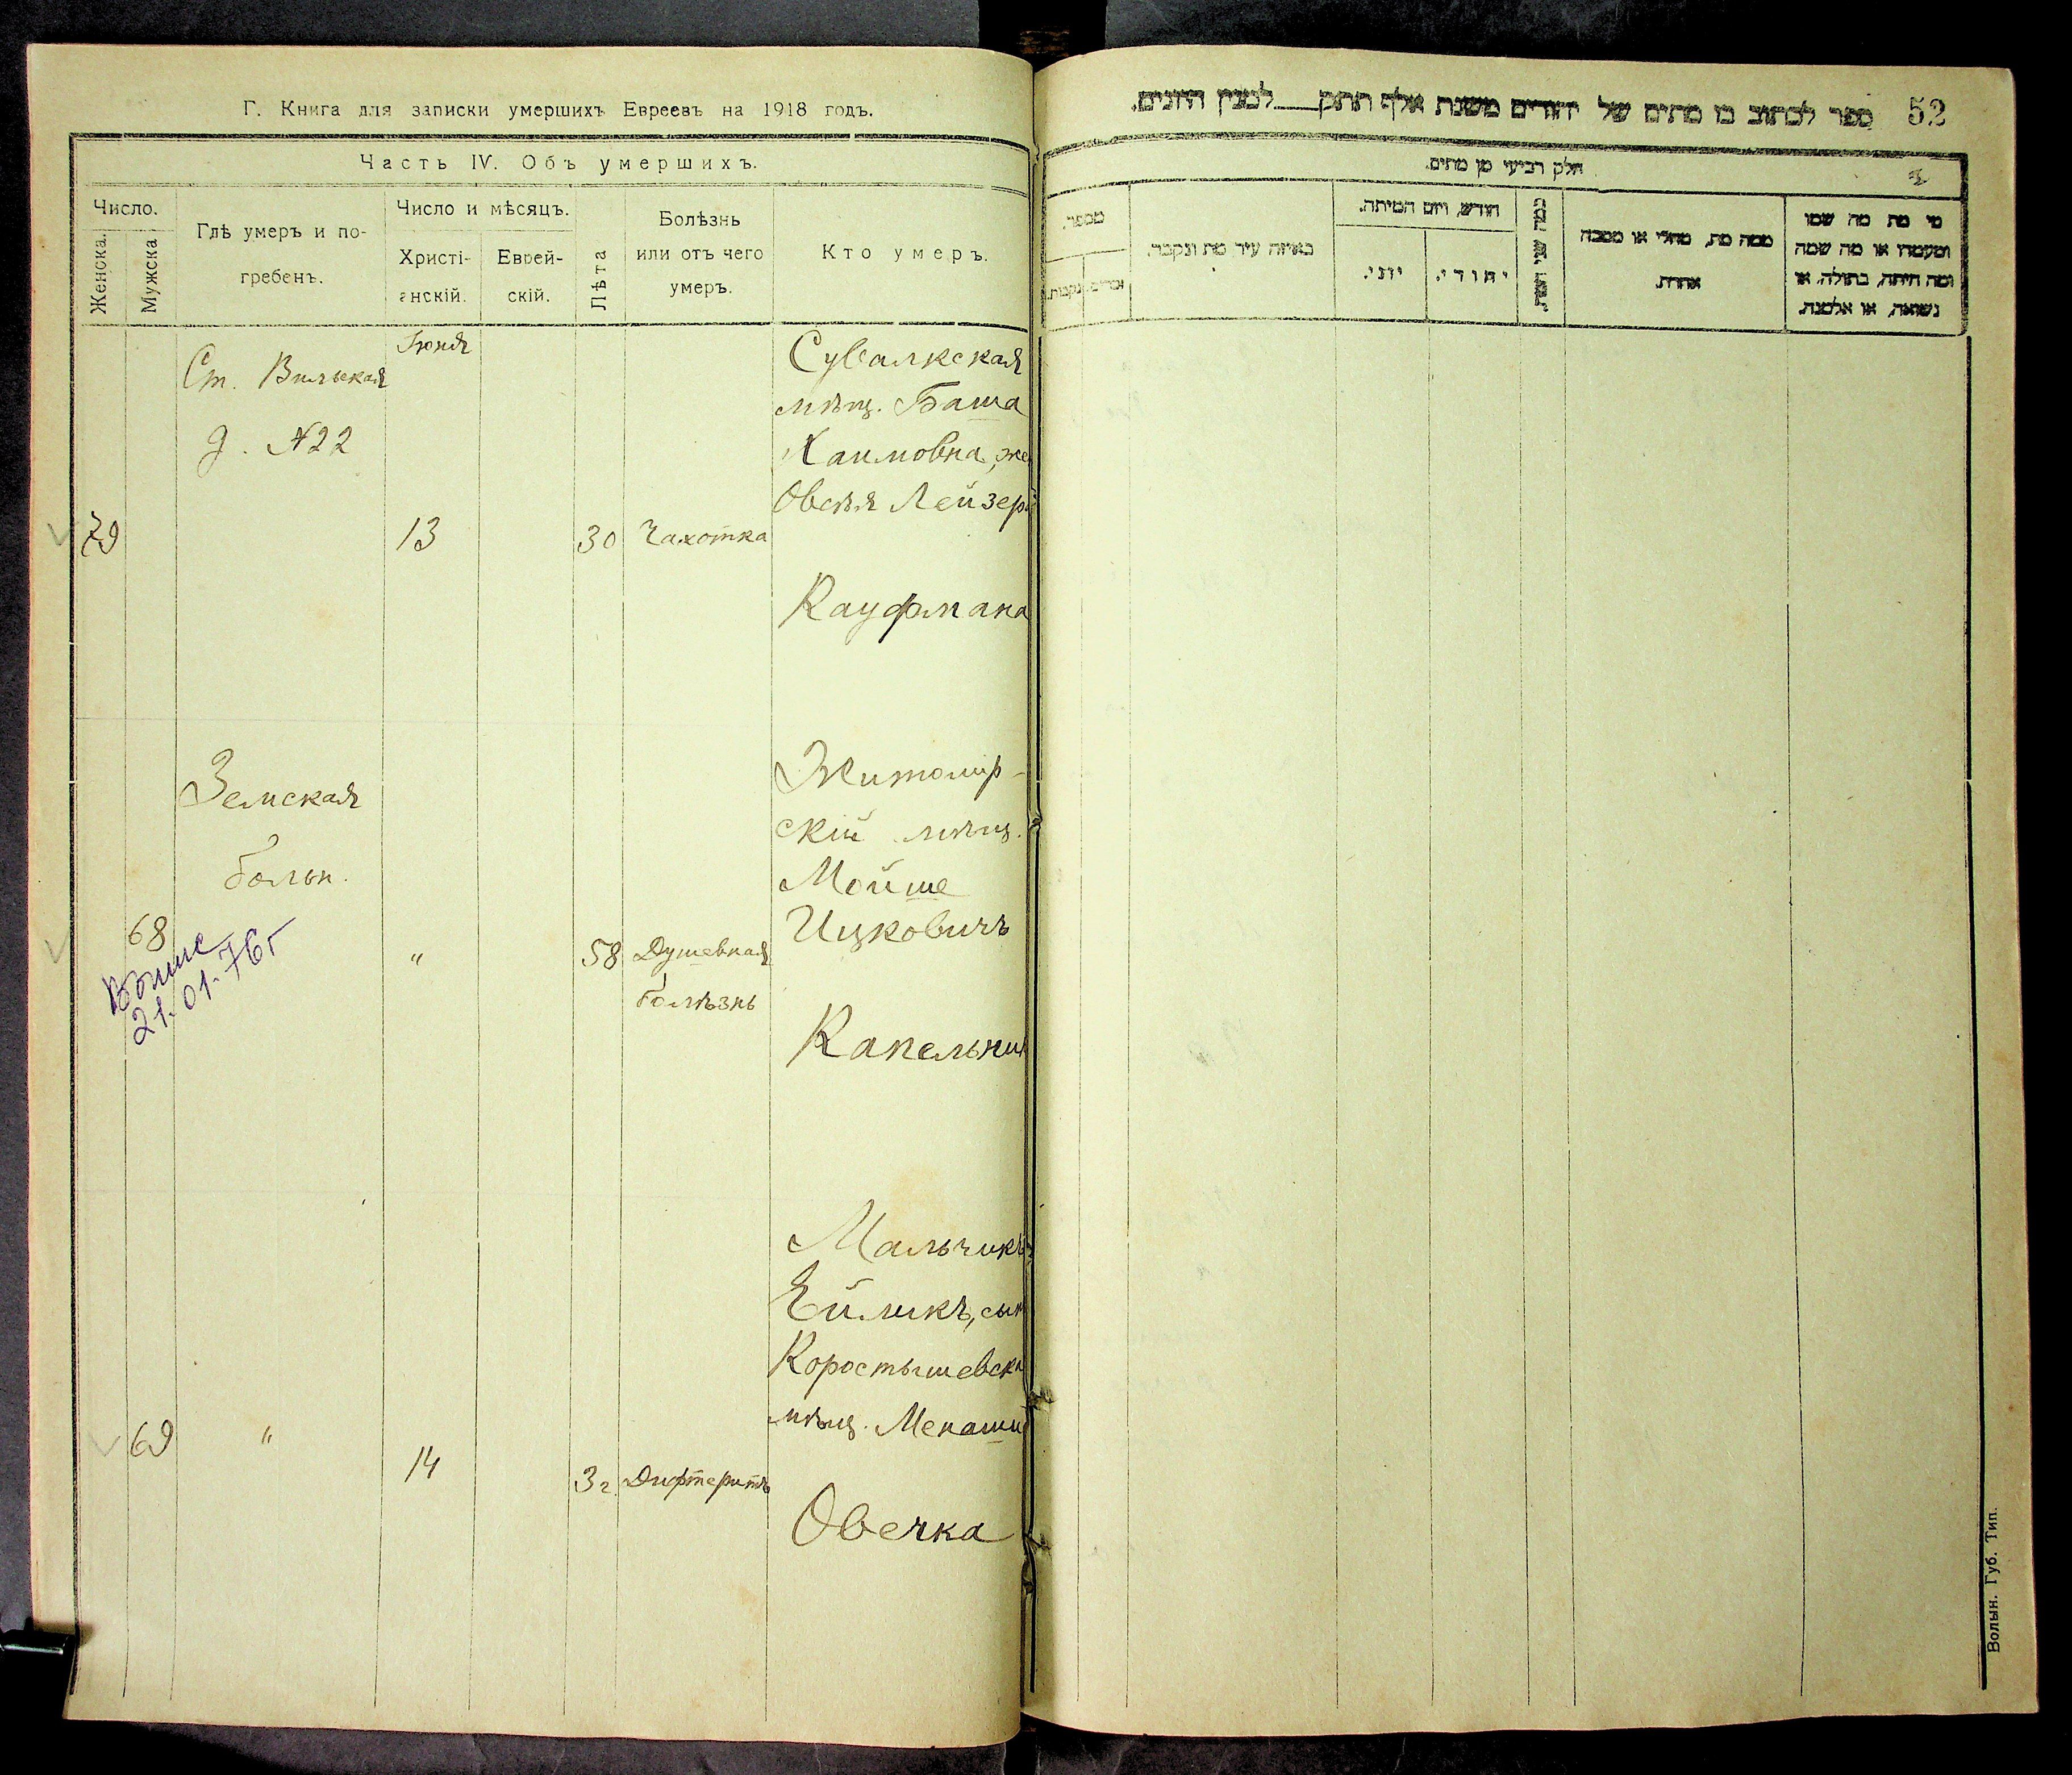 Г. Книга для записки умершихъ Евреевъ на 1918 годъ.
Часть IV. Объ умершихъ.
Число.
Женска.
Мужска
Глѣ умеръ и по-
гребенъ.
Число и мѣсяцъ.
Христі-
анскій.
Еврей-
скій.
Лѣта
Болѣзнь
или отъ чего
умеръ.
Кто умеръ.
Ст. Вильская
д. №22
79
Іюня
13
30
Чахотка
Сувалкская
мѣщ. Баша
Хаимовна, же
Овсѣя Лейзер
Кауфмана
Земская
больн.
68
21.01.76г
"
58
Душевная
болѣзнь
Житомир-
скій мѣщ.
Мойше
Ицковичъ
Капельни
69
"
14
3г
Дифтеритъ
Мальчикъ
Ейликъ, сын
Коростышевск
мѣщ. Менаши
Овечка
52
ספר לכתוב בו מתים של יהודים משנת אלף תתק___למנין היונים.
חלק רביעי מן מתים.
מספר.
זכרים.
נקבות.
באיזה עיר מת ונקבר.
חודש, ויום המיתה.
יוני.
יהודי.
כמה שני חייו.
ממה מת, מחלי או מסבה
אחרת.
מי מת מה שמו
ומעמדו או מה שמה
ומה היתה, בתולה, או
נשואה, או אלמנה.
Волын. Губ. Тип.